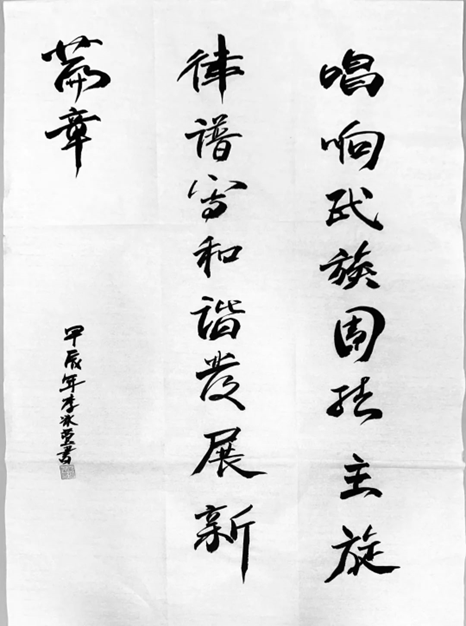 唱响民族团结主旋
律谱写和谐发展新
篇章
甲辰年李冰书